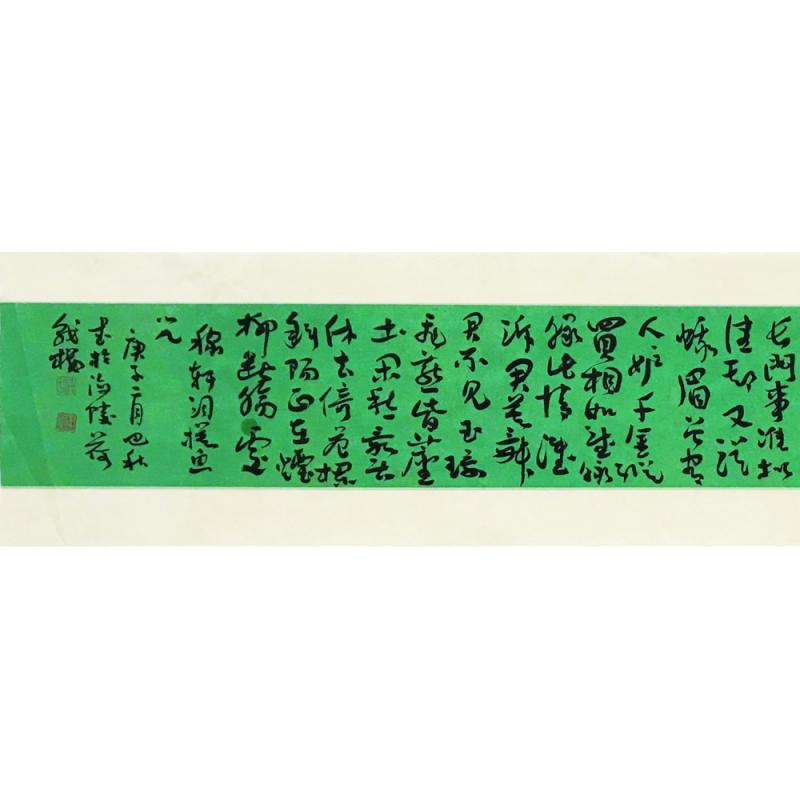 長門事準拟
佳期又誤
蛾眉曾有
人妒千金縱
買相如賦脉
脉此情誰
訴君莫舞
君不見玉環
飛燕皆塵
土閑愁最苦
休去倚危欄
斜陽正在煙
柳斷腸處
稼軒詞摸魚
兒
庚子二月巴秋
書於海陵